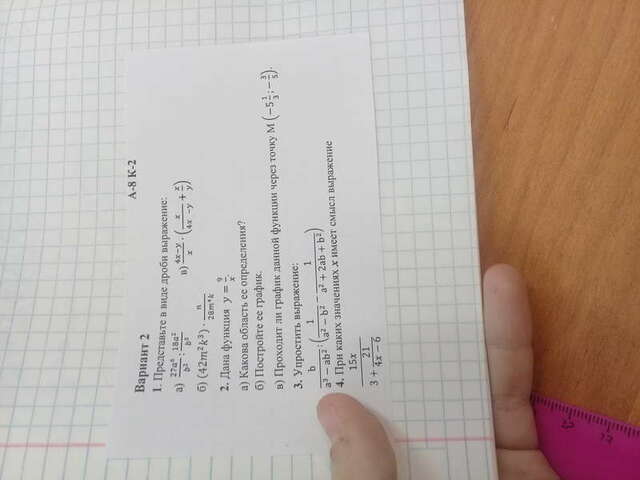 А-8 К-2
Вариант 2
1. Представьте в виде дроби выражение:
а) 27a⁶/b² : 18a²/b⁵ в) (4x−y)/x · (x/(4x −y) + x/y)
б) (42m²k³) · n/(28m⁴k)
2. Дана функция y = 9/x.
а) Какова область ее определения?
б) Постройте ее график.
в) Проходит ли график данной функции через точку М (−5 1/3; −3/5).
3. Упростить выражение:
b/(a³ − ab²) : (1/(a² − b²) − 1/(a² + 2ab + b²))
4. При каких значениях x имеет смысл выражение
15x/(3 + 21/(4x − 6))